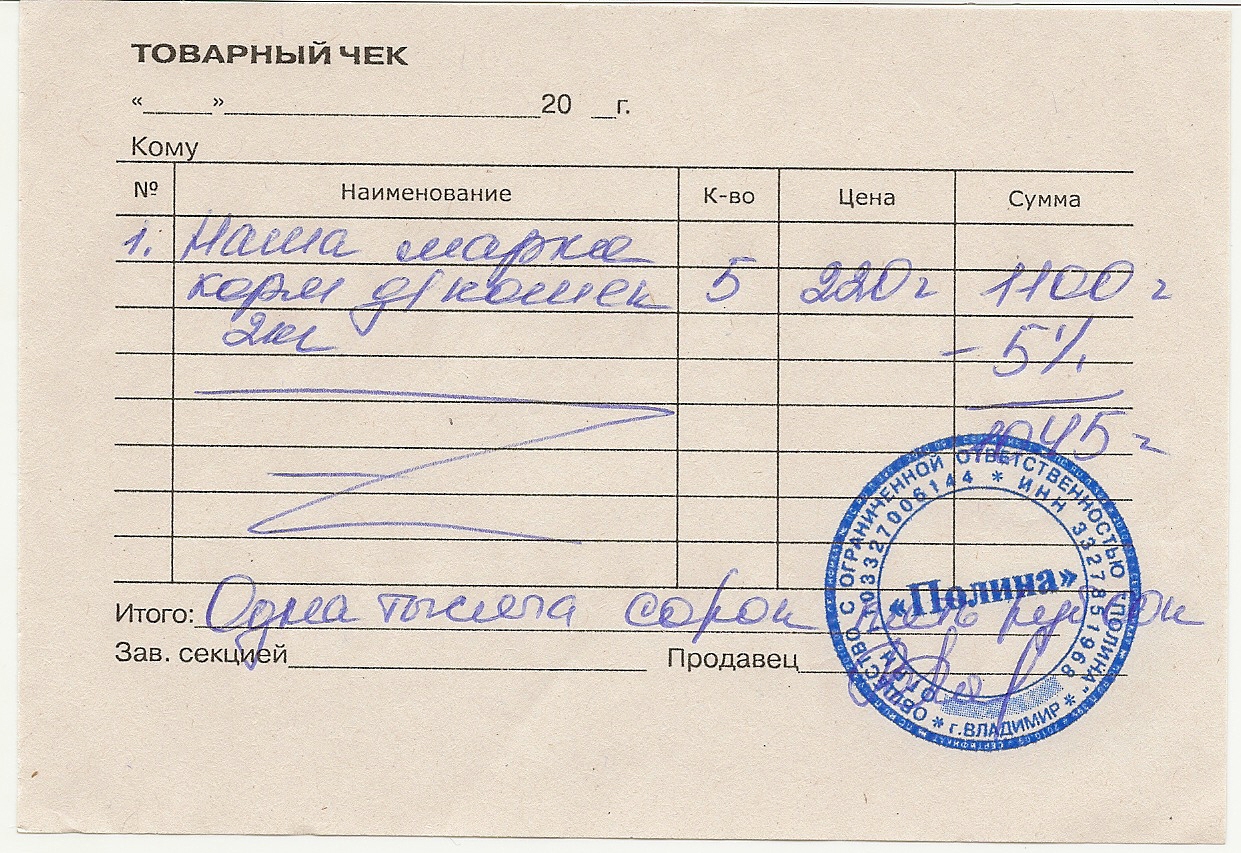 ТОВАРНЫЙ ЧЕК
«____»____________________20 __г.
Кому
№ Наименование К-во Цена Сумма
1. Наша марка
корм д/кошек 5 220 = 1100 =
2кг - 5%
1045 =
Итого: Одна тысяча сорок пять руб 00к
Зав. секцией Продавец
ОБЩЕСТВО С ОГРАНИЧЕННОЙ ОТВЕТСТВЕННОСТЬЮ "ПОЛИНА"
* г.ВЛАДИМИР *
ОГРН 1033327006144 * ИНН 3327851968
«Полина»